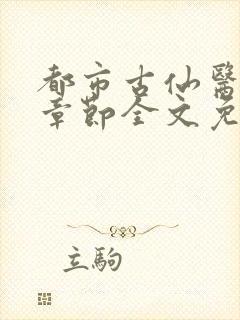 都市古仙醫
章節全文免
立駒